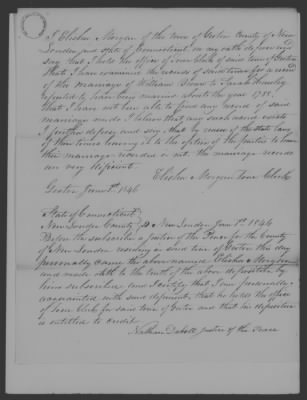 I Elisha Morgan of the town of Groton County of New
London and State of Connecticut on my oath depose and
say that I hold the office of Town Clerk of said town of Groton
that I have examined the records of said town for a record
of the marriage of William Pierce to Sarah
reputed to have been married about the year 1788.
that I have not been able to find any record of said
marriage made. I believe that any such record exists
I further depose and say that by reason of the state laws
of those times leaving it to the option of the parties to have
their marriage recorded or not. the marriage records
are very deficient.
Elisha Morgan Town Clerk
Groton Jan 1st 1846
State of Connecticut
New London County } ss New London Jan 1st 1846
Before the subscriber a Justice of the Peace for the County
of New London residing in said town of Groton this day
personally came the above named Elisha Morgan
and made oath to the truth of the above deposition by
him subscribed and I certify that I am personally
acquainted with said deponent, that he holds the office
of Town Clerk for said town of Groton and that his deposition
is entitled to credit
Nathan Daboll Justice of the Peace